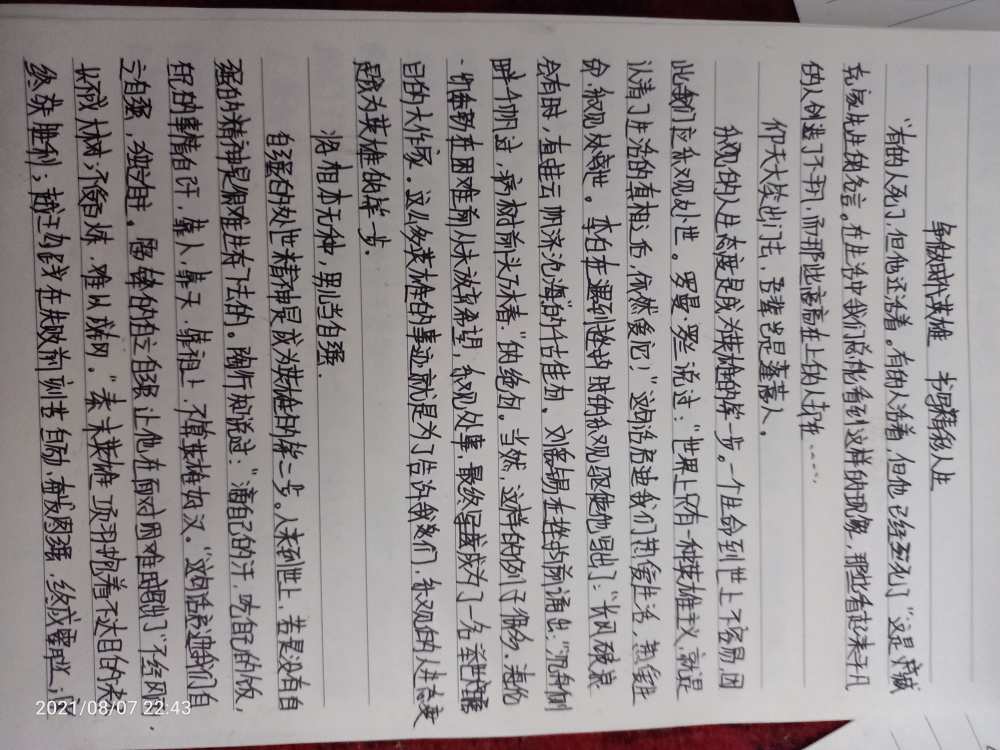 争做时代英雄 书写精彩人生
“有的人死了,但他还活着。有的人活着,但他已经死了”这是臧
克家先生的名言。在生活中我们总能看到这样的现象,那些看起来平凡
的人创造了不平凡,而那些高高在上的人却在……
仰天大笑出门去,吾辈岂是蓬蒿人。
乐观的人生态度是成为英雄的第一步。一个生命到世上不容易,因
此我们应乐观处世。罗曼·罗兰说过:“世界上只有一种英雄主义,就是
认清了生活的真相过后,依然爱它!”这句话启迪我们热爱生活,热爱生
命,乐观对离世。李白在遇到挫折时的乐观驱使他写出了:“长风破浪
会有时,直挂云帆济沧海”的千古佳句。刘禹锡在挫折前诵出:“沉舟侧
畔千帆过,病树前头万木春。”的绝句。当然,这样的例子很多。海伦
·凯勒在困难前从未放弃希望,乐观处事,最终成为了一名举世瞩
目的大作家。这么多英雄的事迹就是为了告诉我们,乐观的人生态度
是成为英雄的第一步。
将相本无种,男儿当自强.
自强的处世精神是成为英雄的第二步。人来到世上,若是没有自
强的精神是很难生存下去的。陶行知说过:“滴自己的汗,吃自己的饭,
自己的事情自己干,靠人,靠天,靠祖上,不算英雄好汉。”这句话启迪我们自
立自强,独立自主。
长成大树;不受百炼,难以成钢。”
终获胜利;越王勾践在失败前刻苦自励,奋发图强,终成霸业;
2021/08/07 22:43